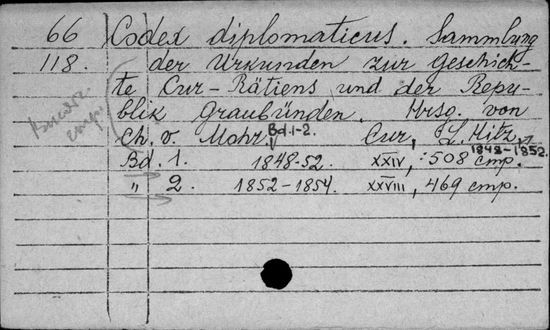 66 Codex diplomaticus. Sammlung
118. der Urkunden zur Geschich-
te Cur-Rätiens und der Repu-
blik Graubünden. Hrsg. von
Ch. v. Mohr. Bd. 1-2. Cur, L. Hitz,
1848-1852.
Bd. 1. 1848-52. XXIV, 508 стр.
" 2. 1852-1854. XXVIII, 469 стр.